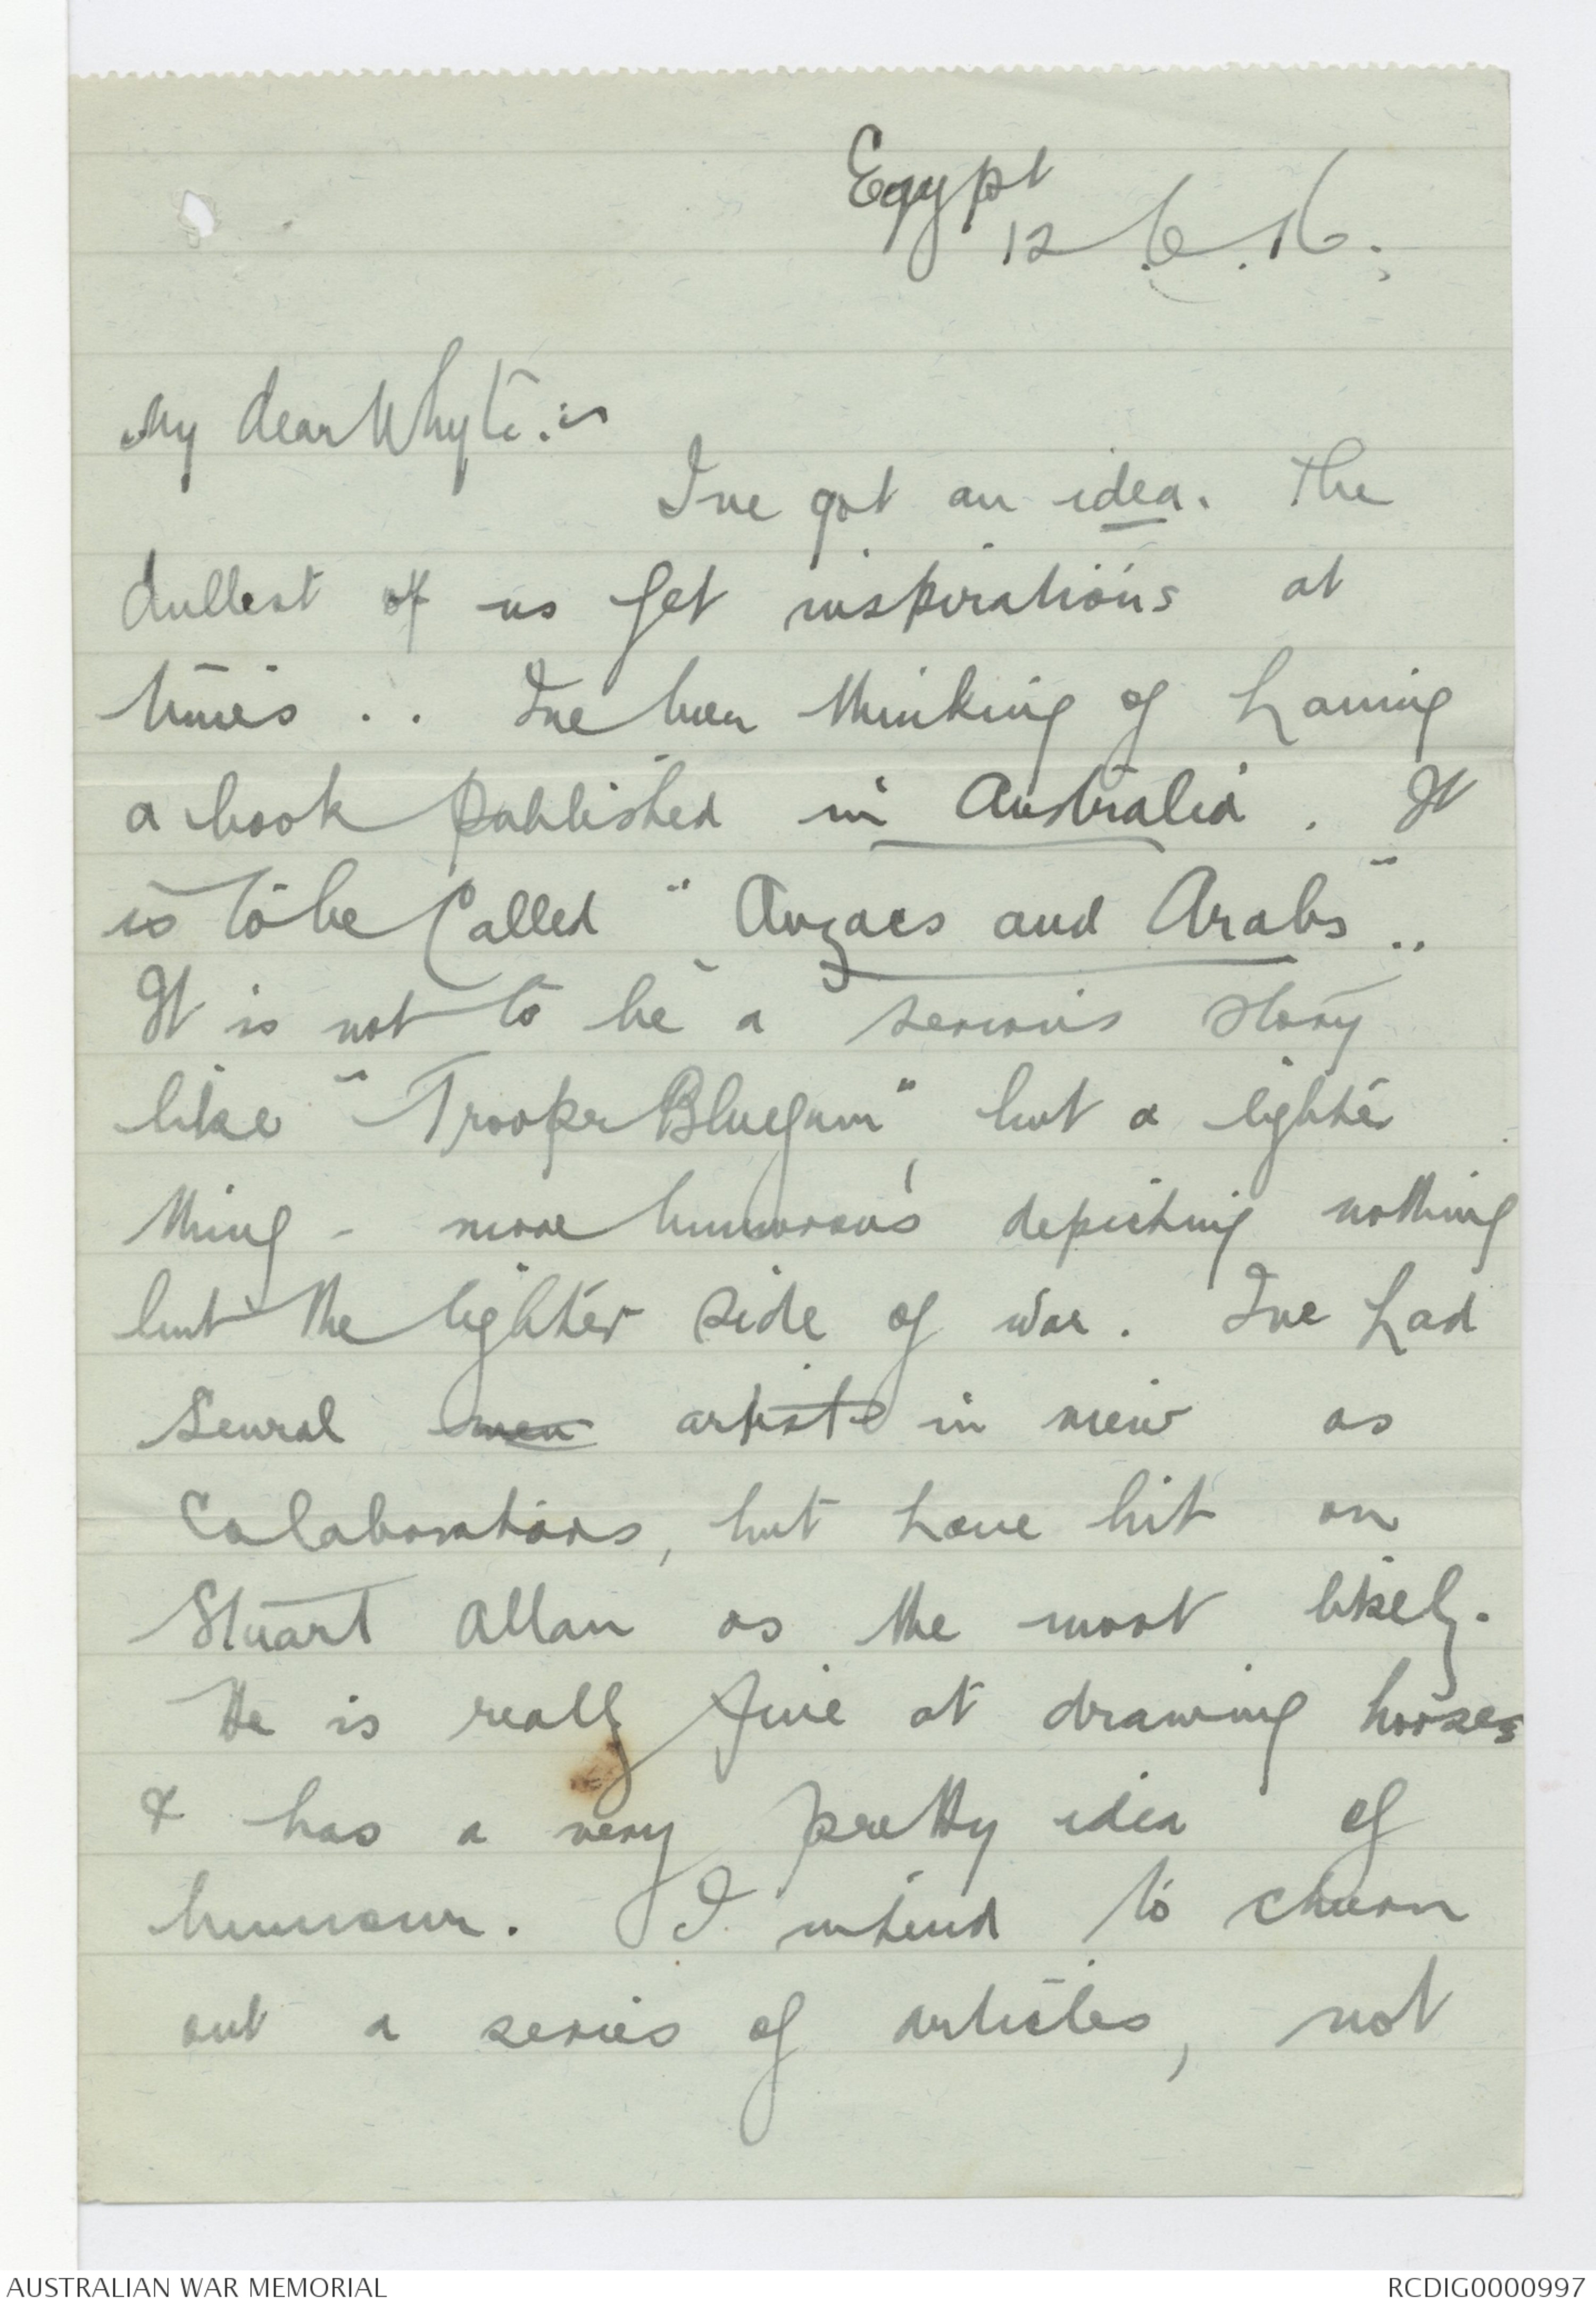 Egypt
12.6.16.
My dear Whyte:-
I've got an idea. The
dullest of us get inspirations at
times.. I've been thinking of having
a book published in Australia. It
is to be Called "Anzacs and Arabs"..
It is not to be a serious story
like "Trooper Bluegum", but a lighter
thing - more humorous depicting nothing
but the lighter side of war. I've had
several men artists in view as
Colaborators, but have hit on
Stuart Allan as the most likely.
He is really fine at drawing horses
& has a very pretty idea of
humour. I intend to churn
out a series of articles, not
AUSTRALIAN WAR MEMORIAL
RCDIG0000997